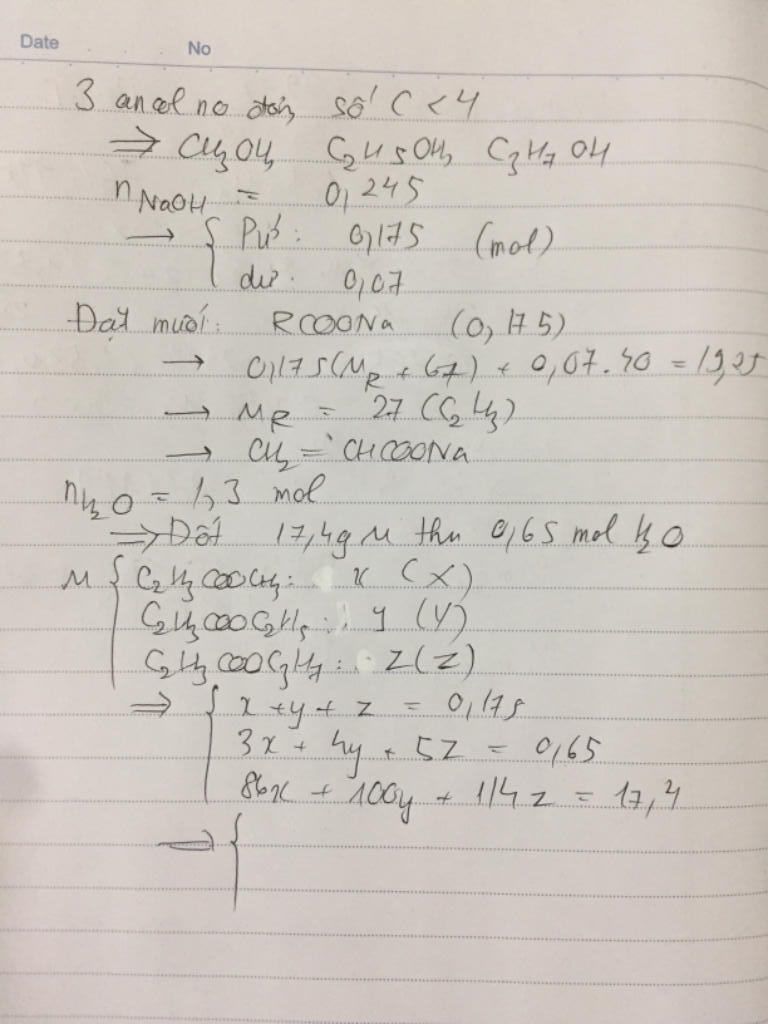 Date No
3 ancol no đơn, số C < 4
⇒ CH₃OH, C₂H₅OH, C₃H₇OH
n NaOH = 0,245
→ { Pứ: 0,175 (mol)
dư: 0,07
Đặt muối: RCOONa (0,175)
→ 0,175(M_R + 67) + 0,07.40 = 19,25
→ M_R = 27 (C₂H₃)
→ CH₂ = CHCOONa
n H₂O = 1,3 mol
⇒ Đốt 17,4g M thu 0,65 mol H₂O
M { C₂H₃COOCH₃: x (X)
C₂H₃COOC₂H₅: y (Y)
C₂H₃COOC₃H₇: z (Z)
⇒ { x + y + z = 0,175
3x + 4y + 5z = 0,65
86x + 100y + 114z = 17,4
⇒ {